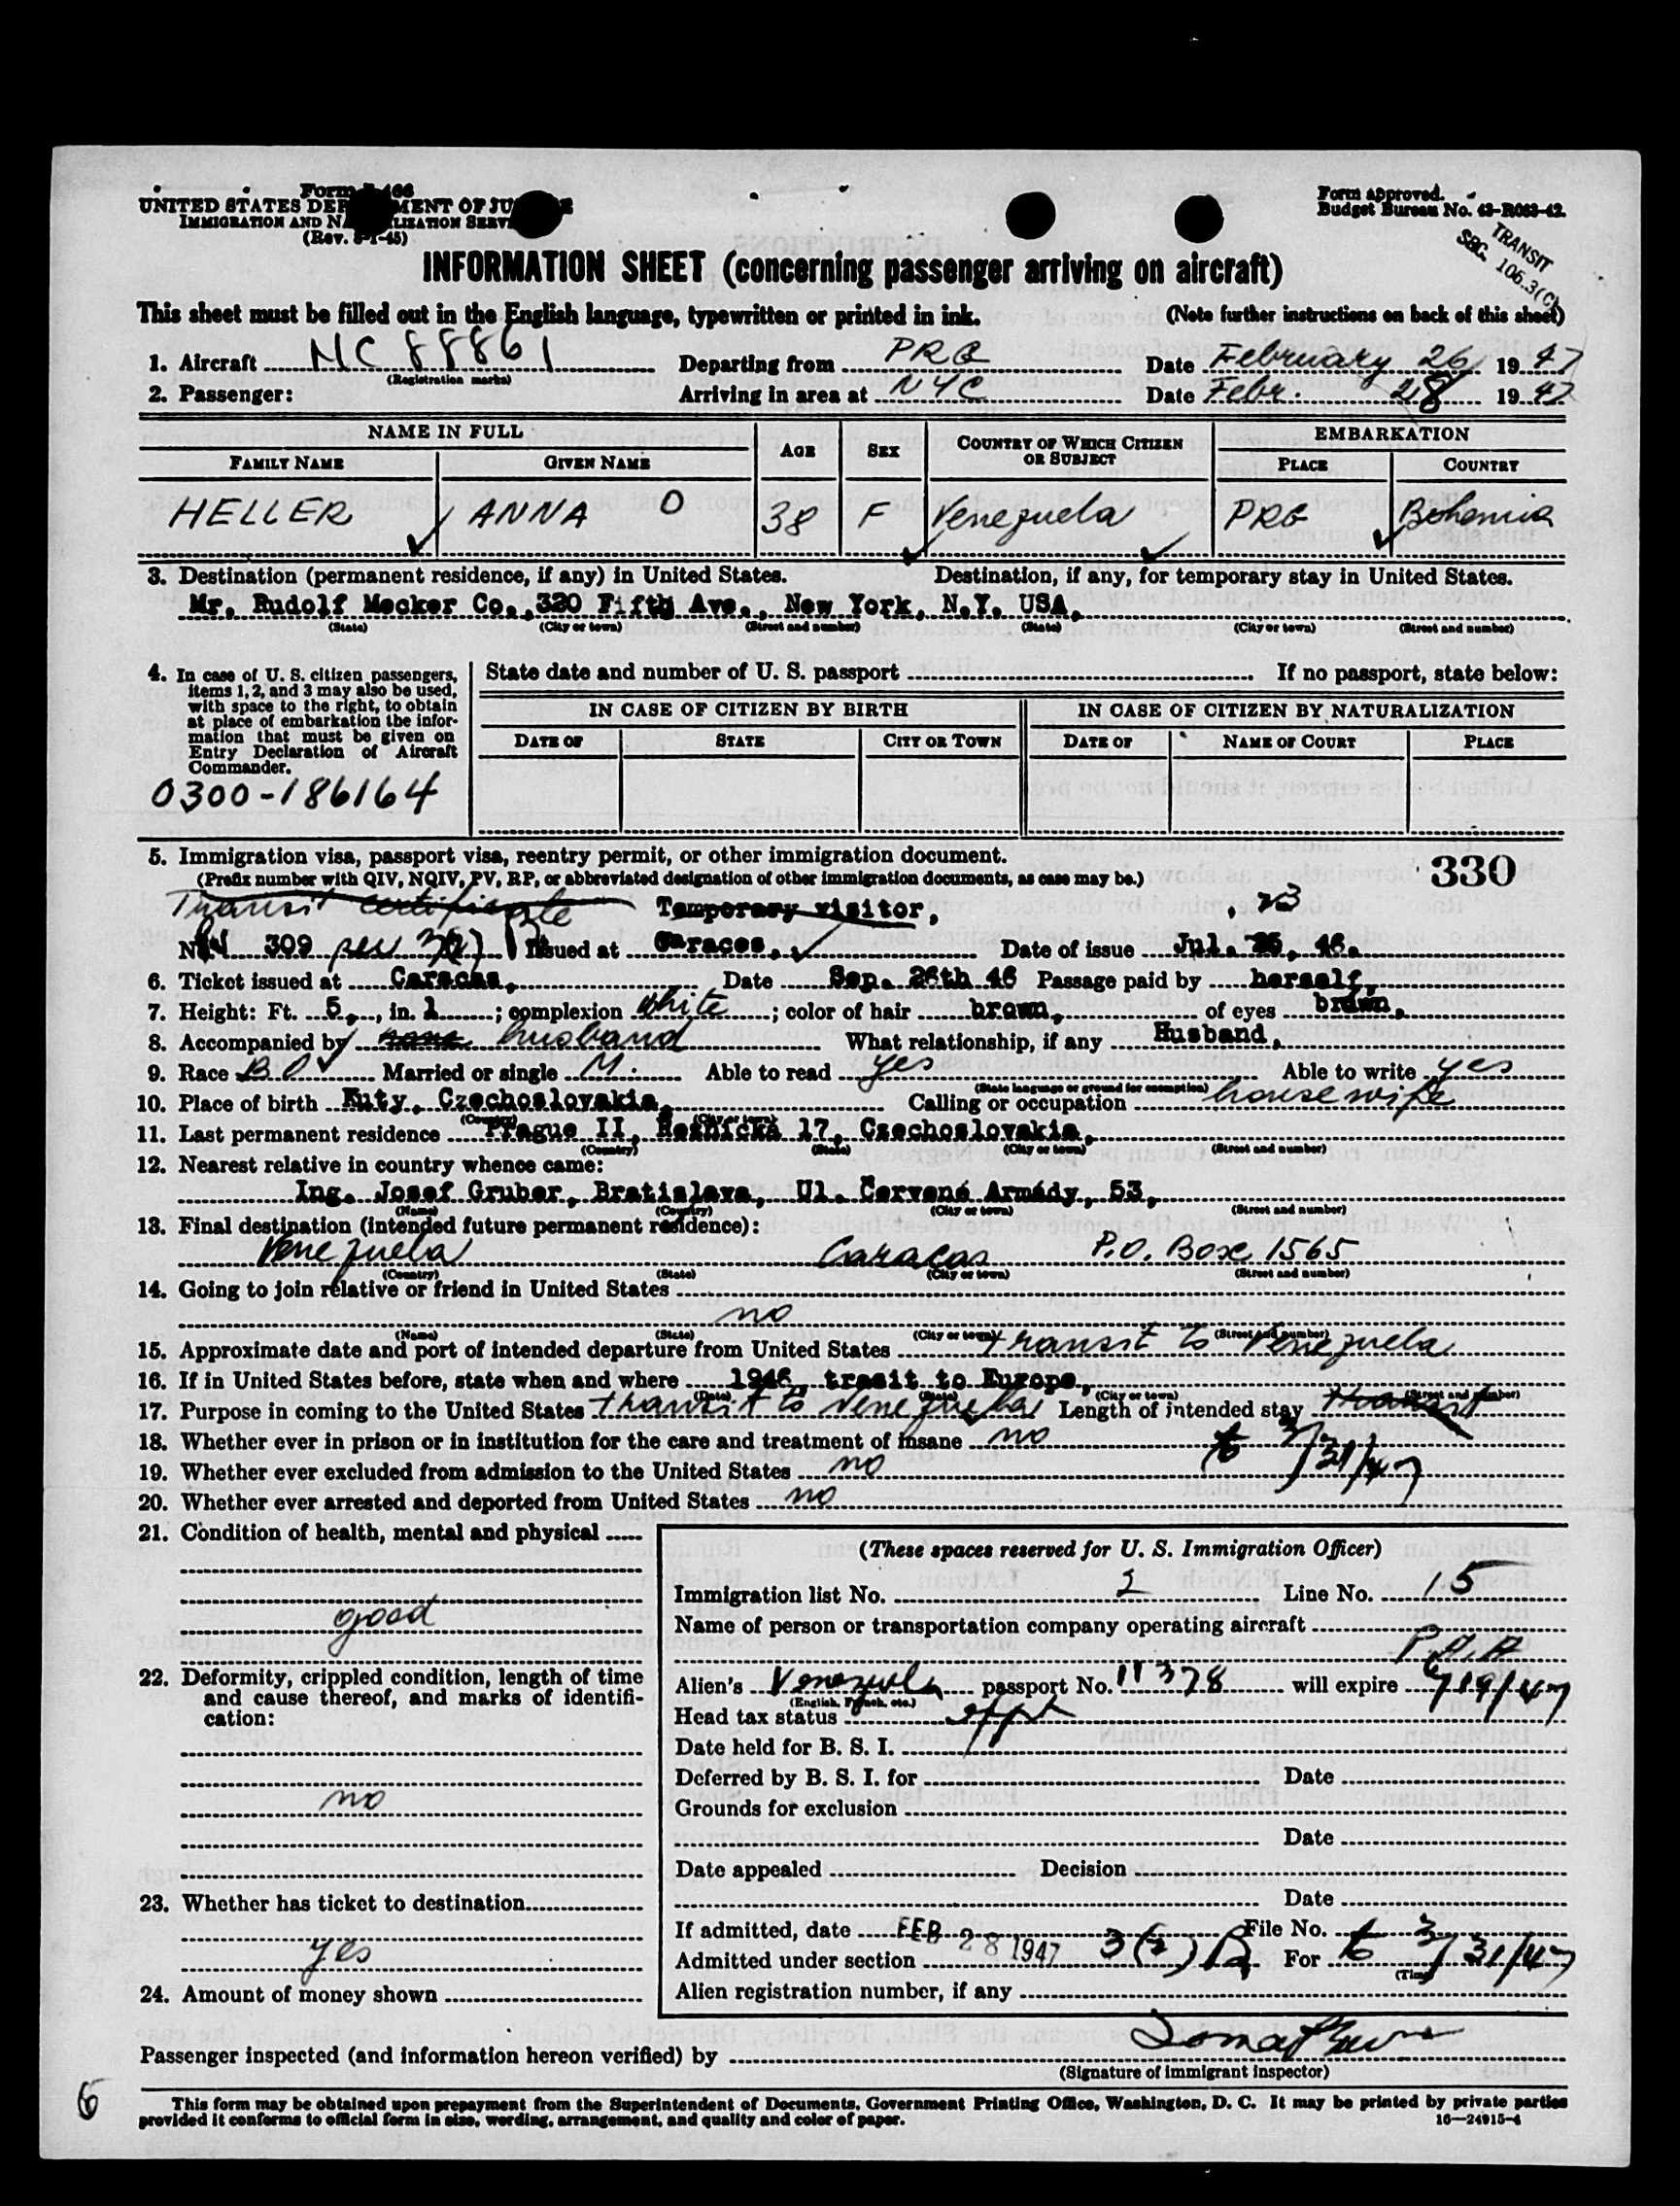 Form I-466
UNITED STATES DEPARTMENT OF JUSTICE
IMMIGRATION AND NATURALIZATION SERVICE
(Rev. 5-1-45)
Form approved.
Budget Bureau No. 43-R063-42.
TRANSIT
SEC. 106.3(C)
INFORMATION SHEET (concerning passenger arriving on aircraft)
This sheet must be filled out in the English language, typewritten or printed in ink. (Note further instructions on back of this sheet)
1. Aircraft NC 88861 Departing from PRG Date February 26 1947
(Registration marks)
2. Passenger: Arriving in area at NYC Date Febr. 28 1947
NAME IN FULL AGE SEX COUNTRY OF WHICH CITIZEN OR SUBJECT EMBARKATION
FAMILY NAME GIVEN NAME PLACE COUNTRY
HELLER ANNA O 38 F Venezuela PRG Bohemia
3. Destination (permanent residence, if any) in United States. Destination, if any, for temporary stay in United States.
Mr. Rudolf Mecker Co., 320 Fifth Ave., New York, N.Y. USA,
(State) (City or town) (Street and number) (State) (City or town) (Street and number)
4. In case of U. S. citizen passengers, items 1, 2, and 3 may also be used, with space to the right, to obtain at place of embarkation the information that must be given on Entry Declaration of Aircraft Commander.
0300-186164
State date and number of U. S. passport If no passport, state below:
IN CASE OF CITIZEN BY BIRTH IN CASE OF CITIZEN BY NATURALIZATION
DATE OF STATE CITY OR TOWN DATE OF NAME OF COURT PLACE
5. Immigration visa, passport visa, reentry permit, or other immigration document. 330
(Prefix number with QIV, NQIV, PV, RP, or abbreviated designation of other immigration documents, as case may be.)
Transit certificate Temporary visitor, 23
309 Issued at Caracas, Date of issue Jul. 25, 46.
6. Ticket issued at Caracas, Date Sep. 26th 46 Passage paid by herself,
7. Height: Ft. 5, in. 1 ; complexion white ; color of hair brown, of eyes brown,
8. Accompanied by none husband What relationship, if any Husband,
9. Race BO Married or single M. Able to read yes Able to write yes
(State language or ground for exemption)
10. Place of birth Kuty, Czechoslovakia, Calling or occupation housewife
(Country) (City or town)
11. Last permanent residence Prague II, Reznická 17, Czechoslovakia,
(Country) (State) (City or town) (Street and number)
12. Nearest relative in country whence came:
Ing. Josef Gruber, Bratislava, Ul. Červené Armády, 53,
(Name) (Country) (City or town) (Street and number)
13. Final destination (intended future permanent residence):
Venezuela Caracas P.O. Box 1565
(Country) (State) (City or town) (Street and number)
14. Going to join relative or friend in United States
no
(Name) (State) (City or town) (Street and number)
15. Approximate date and port of intended departure from United States transit to Venezuela
16. If in United States before, state when and where 1946 trasit to Europe,
(Date) (State) (City or town) (Street and number)
17. Purpose in coming to the United States transit to Venezuela Length of intended stay transit
18. Whether ever in prison or in institution for the care and treatment of insane no to 3/31/47
19. Whether ever excluded from admission to the United States no
20. Whether ever arrested and deported from United States no
21. Condition of health, mental and physical
good
22. Deformity, crippled condition, length of time and cause thereof, and marks of identification:
no
23. Whether has ticket to destination
yes
24. Amount of money shown
(These spaces reserved for U. S. Immigration Officer)
Immigration list No. 2 Line No. 15
Name of person or transportation company operating aircraft
P.A.A
Alien's Venezuela passport No. 11378 will expire
(English, French, etc.)
Head tax status
Date held for B. S. I.
Deferred by B. S. I. for Date
Grounds for exclusion
Date
Date appealed Decision
Date
If admitted, date FEB 28 1947 File No.
Admitted under section 3(2) For to 3/31/47
(Time)
Alien registration number, if any
Passenger inspected (and information hereon verified) by
(Signature of immigrant inspector)
6
This form may be obtained upon prepayment from the Superintendent of Documents, Government Printing Office, Washington, D. C. It may be printed by private parties
provided it conforms to official form in size, wording, arrangement, and quality and color of paper. 16—24915-4